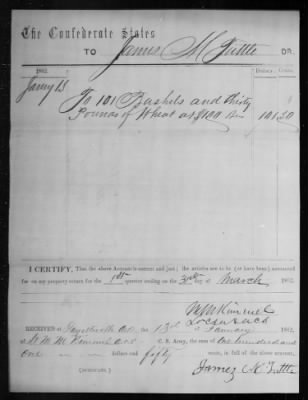 The Confederate States
TO James M Tuttle DR.
1862. Dollars. Cents.
Jany 13
To 101 Bushels and thirty
Pounds of Wheat at $1.00 101.50
I CERTIFY, That the above Account is correct and just; the articles are to be (or have been) accounted
for on my property return for the 1st quarter ending on the 31st day of March 1862.
W M Kimmel
RECEIVED at the 13th of January 1862,
of W. M. Kimmel C. S. Army, the sum of one hundred and
one dollars and fifty cents, in full of the above account.
(DUPLICATE.) James M Tuttle